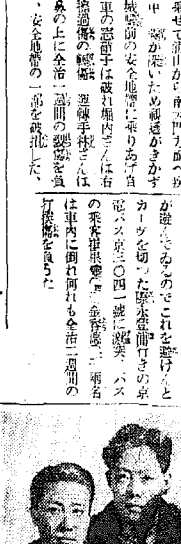 乗せて浦山から南大門方面へ疾
中、が深いため視透がきかず
城駅前の安全地帯に乗りあげ自
車の窓硝子は破れ堀内さんは右
擦過傷の軽傷、運転手林さんは
鼻の上に全治一週間の裂傷を負
、安全地帯の一部を破損した、
が遊んでゐるのでこれを避けんと
カーヴを切つた永登浦行きの京
電バス京三〇四一号に激突、バス
の乗客崔根金容二両名
は車内に倒れ何れも全治二週間の
打撲傷を負うた